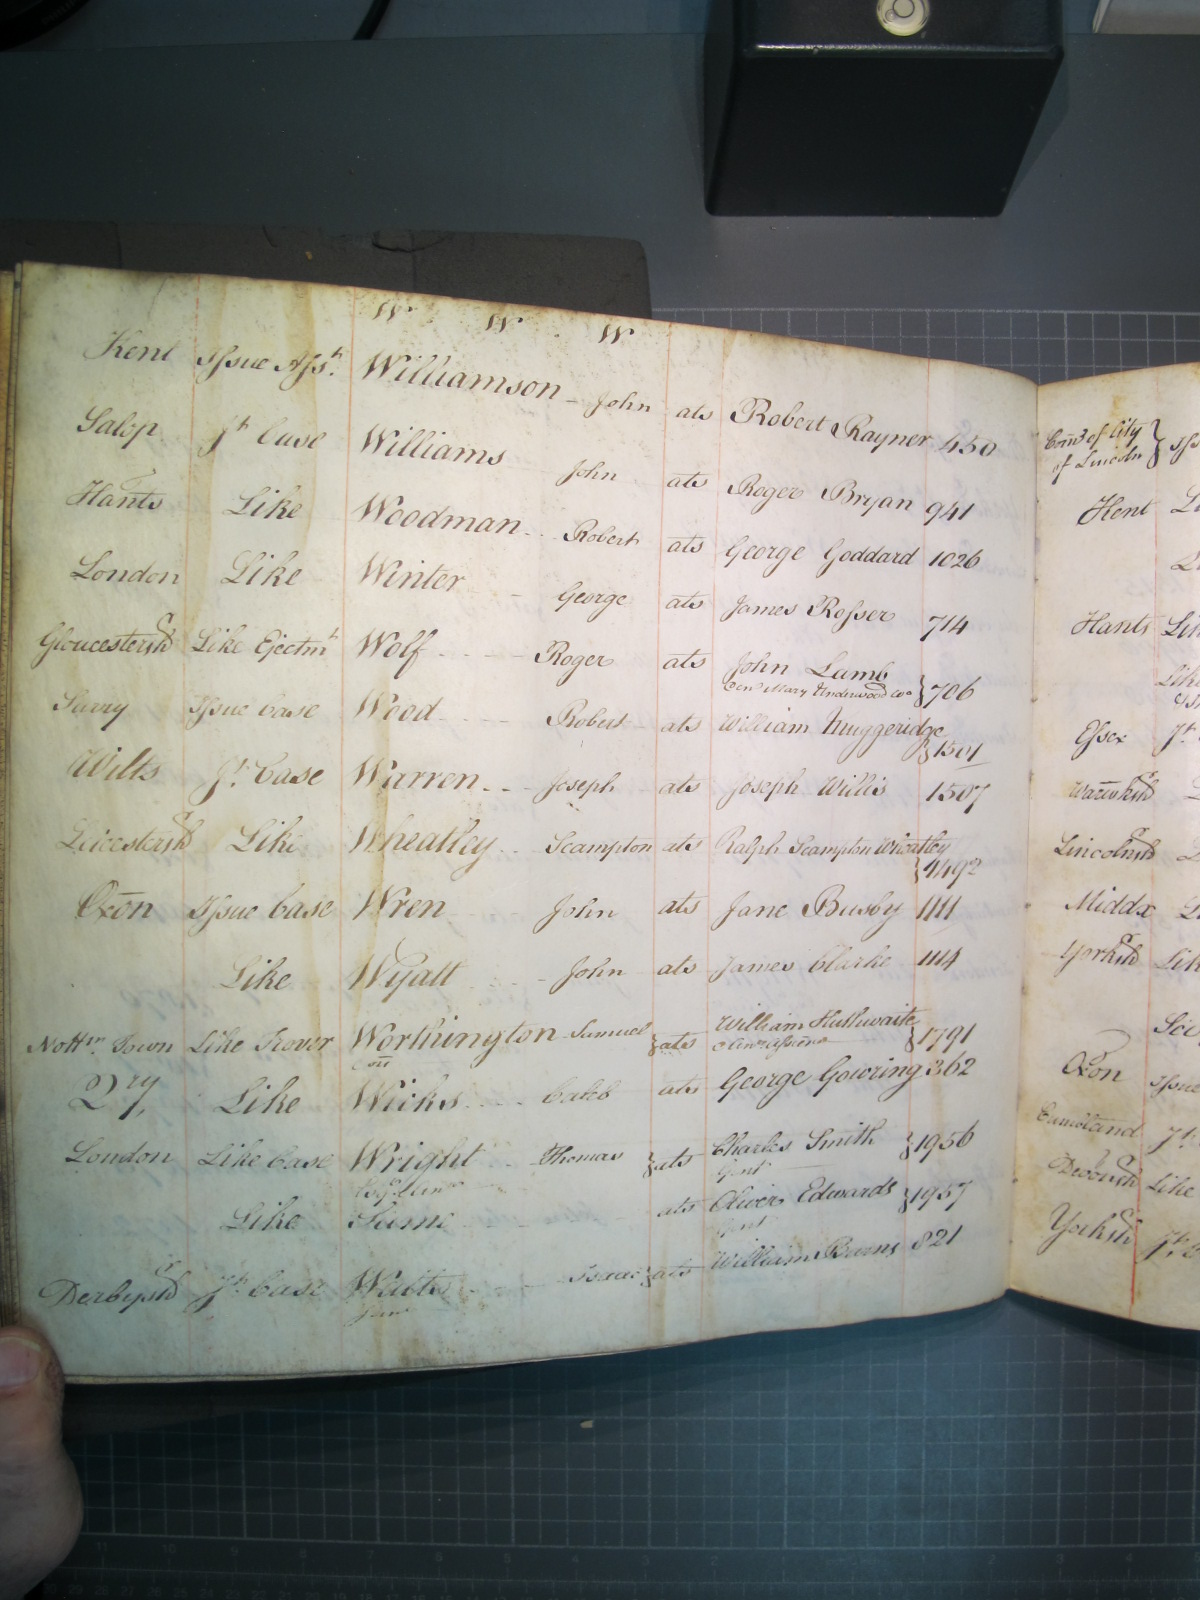 W W W
Kent Issue Asst. Williamson John ats Robert Rayner 450
Salop Jt. Case Williams John ats Roger Bryan 941
Hants Like Woodman Robert ats George Goddard 1026
London Like Winter George ats James Rosser 714
Gloucestersh Like Ejectmt Wolf Roger ats John Lamb
Mary Underwood 706
Surry Issue Case Wood Robert ats William Muggeridge
1501
Wilts Jt. Case Warren Joseph ats Joseph Willis 1507
Leicestersh Like Wheatley Scampton ats Ralph Scampton Wheatley
1492
Oxon Issue Case Wren John ats Jane Busby 1111
Like Wyatt John ats James Clarke 1114
Nottm. Town Like Trover Worthington Samuel ats William Huthwaite 1791
Like Wicks Caleb ats George Gowring 362
London Like Case Wright Thomas ats Charles Smith 1956
Gent
Like Same ats Oliver Edwards 1957
Gent
Derbysh Jt. Case Isaac ats William Burns 821
of City
of Lincoln
Kent
Hants
Essex
Warwksh
Lincolnsh
Middx
Yorksh
Oxon
Cumbland
Devonsh Like
Yorksh